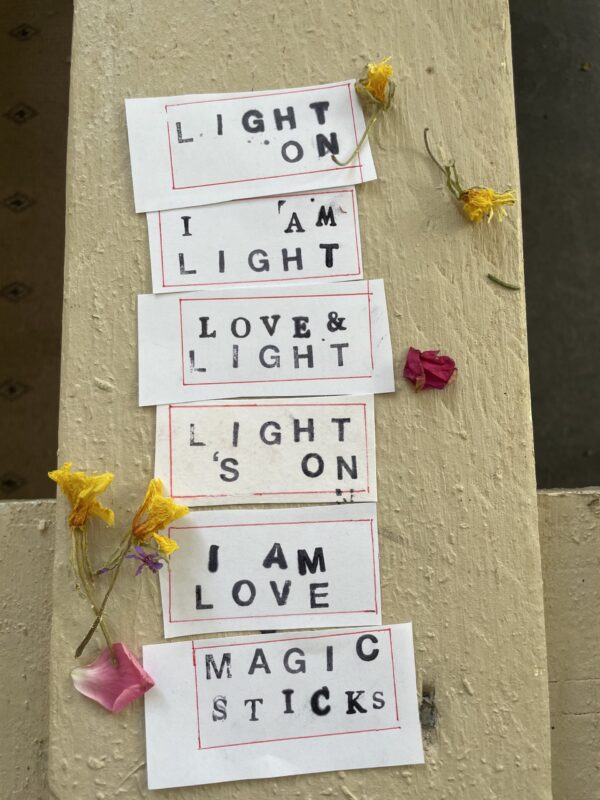 LIGHT
ON
I AM
LIGHT
LOVE &
LIGHT
LIGHT
'S ON
I AM
LOVE
MAGIC
STICKS